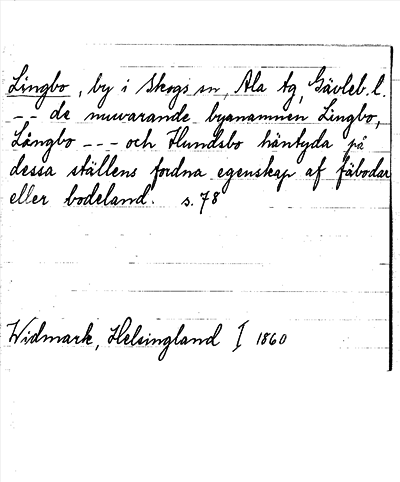 Lingbo, by i Skogs sn, Ala tg, Gävleb. l.
--- de nuvarande byanamnen Lingbo,
Långbo --- och Hundsbo häntyda på
dessa ställens fordna egenskap af fäbodar
eller bodeland. s. 78
Widmark, Helsingland I 1860